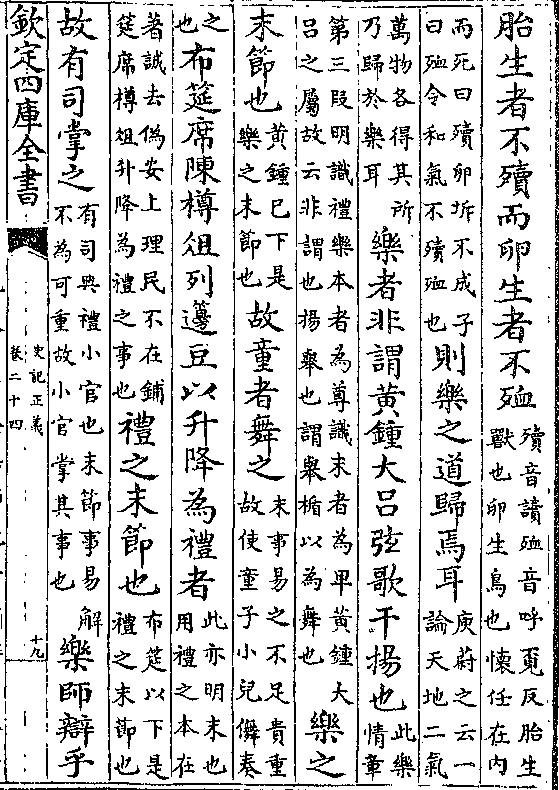 胎生者不殰而卵生者不殈殰音讀殈音呼覔反胎生獸也卵生鳥也懷任在内
而死曰殰卵坼不成子曰殈令和氣不殰殈也則樂之道歸焉耳庾蔚之云一論天地二氣
萬物各得其所乃歸於樂耳樂者非謂黃鍾大吕弦歌干揚也此樂情章
第三段明識禮樂本者為尊識末者為卑黃鍾大吕之屬故云非謂也揚舉也謂舉楯以為舞也樂之
末節也黃鍾已下是樂之末節也故童者舞之末事易之不足貴重故使童子小兒儛奏
之也布筵席陳樽俎列籩豆以升降為禮者此亦明末也用禮之本在
著誠去偽安上理民不在鋪筵席樽俎升降為禮之事也禮之末節也布筵以下是禮之末節也
故有司掌之有司典禮小官也末節事易解不為可重故小官掌其事也樂師辯乎
欽定四庫全書
史記正義
卷二十四
十九